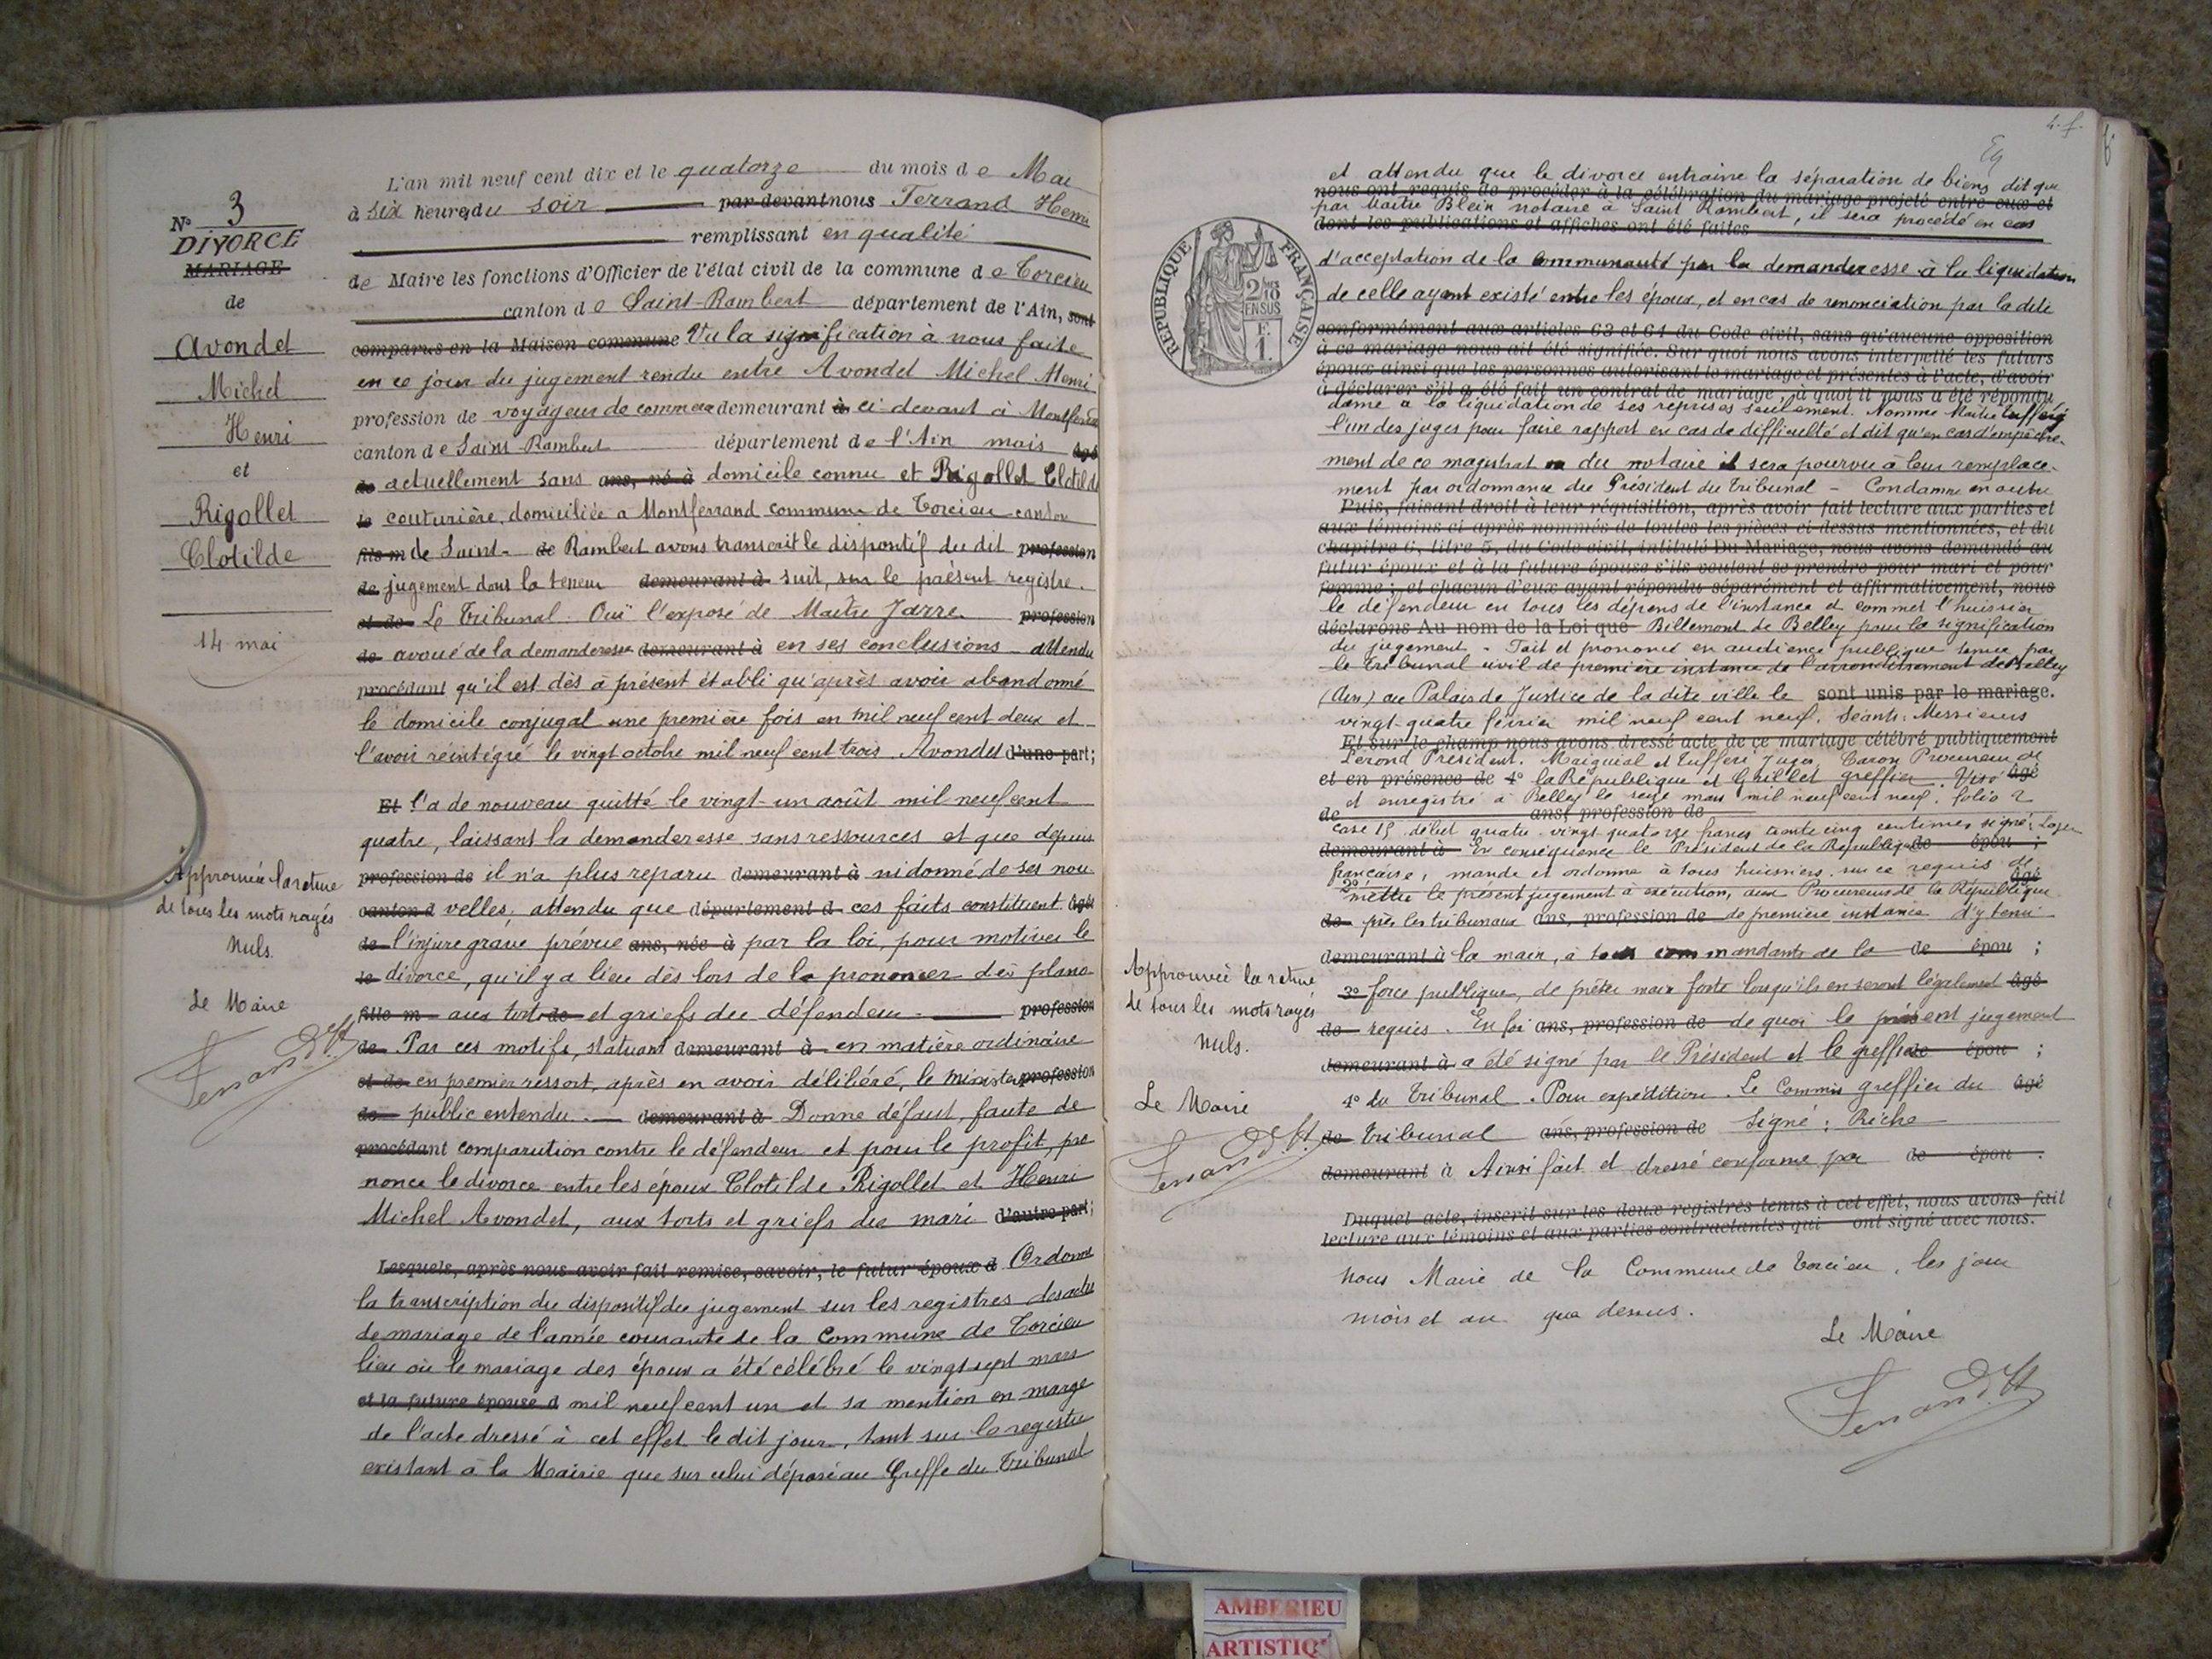 N° 3
DIVORCE
MARIAGE
de
Avondet
Michel
Henri
et
Rigollet
Clotilde
14 mai
Approuvée la rature
de tous les mots rayés
nuls.
Le Maire
Ferrand H
L'an mil neuf cent dix et le quatorze du mois de Mai
à six heures du soir par devant nous Ferrand Henri
remplissant en qualité
de Maire les fonctions d'Officier de l'état civil de la commune de Torcieu
canton de Saint-Rambert département de l'Ain, sont
comparus en la Maison commune Vu la signification à nous faite
en ce jour du jugement rendu entre Avondet Michel Henri
profession de voyageur de commerce demeurant à ci-devant à Montferrand
canton de Saint-Rambert département de l'Ain mais âgé
de actuellement sans ans, né à domicile connu et Rigollet Clotilde
le couturière, domiciliée à Montferrand commune de Torcieu canton
fils m de Saint- de Rambert avons transcrit le dispositif du dit profession
de jugement dont la teneur demeurant à suit, sur le présent registre.
et de Le Tribunal. Ouï l'exposé de Maître Jarre profession
de avoué de la demanderesse demeurant à en ses conclusions attendu
procédant qu'il est dès à présent établi qu'après avoir abandonné
le domicile conjugal une première fois en mil neuf cent deux et
l'avoir réintégré le vingt octobre mil neuf cent trois Avondet d'une part;
Et l'a de nouveau quitté le vingt-un août mil neuf cent
quatre, laissant la demanderesse sans ressources et que depuis
profession de il n'a plus reparu demeurant à ni donné de ses nou
canton d velles; attendu que département d ces faits constituent âgée
de l'injure grave prévue ans, née à par la loi, pour motiver le
le divorce, qu'il y a lieu dès lors de le prononcer de plano
fille m aux torts de et griefs du défendeur. profession
de Par ces motifs, statuant demeurant à en matière ordinaire
et de en premier ressort, après en avoir délibéré, le Ministère profession
de public entendu. demeurant à Donne défaut, faute de
procédant comparution contre le défendeur et pour le profit, pro
nonce le divorce entre les époux Clotilde Rigollet et Henri
Michel Avondet, aux torts et griefs du mari d'autre part;
Lesquels, après nous avoir fait remise, savoir, le futur époux d Ordonne
la transcription du dispositif du jugement sur les registres des actes
de mariage de l'année courante de la Commune de Torcieu
lieu où le mariage des époux a été célébré le vingt sept mars
et la future épouse d mil neuf cent un et sa mention en marge
de l'acte dressé à cet effet le dit jour, tant sur le registre
existant à la Mairie que sur celui déposé au Greffe du Tribunal
RÉPUBLIQUE FRANÇAISE
2/10 EN SUS
1 F.
Approuvée la rature
de tous les mots rayés
nuls.
Le Maire
Ferrand H
et attendu que le divorce entraine la séparation de biens dit que
nous ont requis de procéder à la célébration du mariage projeté entre eux et
par Maître Blein notaire à Saint Rambert, il sera procédé en cas
dont les publications et affiches ont été faites
d'acceptation de la communauté par la demanderesse à la liquidation
de celle ayant existé entre les époux, et en cas de renonciation par la dite
conformément aux articles 63 et 64 du Code civil, sans qu'aucune opposition
à ce mariage nous ait été signifiée. Sur quoi nous avons interpellé les futurs
époux ainsi que les personnes autorisant le mariage et présentes à l'acte, d'avoir
à déclarer s'il a été fait un contrat de mariage, à quoi il nous a été répondu
dame à la liquidation de ses reprises seulement. Nomme Maître
l'un des juges pour faire rapport en cas de difficulté et dit qu'en cas d'empêche-
ment de ce magistrat ou du notaire il sera pourvu à leur remplace-
ment par ordonnance du Président du Tribunal – Condamne en outre
Puis, faisant droit à leur réquisition, après avoir fait lecture aux parties et
aux témoins ci-après nommés de toutes les pièces ci-dessus mentionnées, et du
chapitre 6, titre 5, du Code civil, intitulé Du Mariage, nous avons demandé au
futur époux et à la future épouse s'ils veulent se prendre pour mari et pour
femme; et chacun d'eux ayant répondu séparément et affirmativement, nous
le défendeur en tous les dépens de l'instance et commet l'huissier
déclarons Au nom de la Loi que Billemont de Belley pour la signification
du jugement. Fait et prononcé en audience publique tenue par
le tribunal civil de première instance de l'arrondissement de Belley
(Ain) au Palais de Justice de la dite ville le sont unis par le mariage.
vingt-quatre février mil neuf cent neuf. Séants: Messieurs
Et sur le champ nous avons dressé acte de ce mariage célébré publiquement
Président. et juges, Caron Procureur de
et en présence de 1° la République et Grillet greffier. Visé âgé
et enregistré à Belley le seize mars mil neuf cent neuf, folio 2
de ans, profession de
case 15 débet quatre-vingt-quatorze francs trente cinq centimes signé:
demeurant à En conséquence le Président de la République de épou ;
française, mande et ordonne à tous huissiers, sur ce requis de
2° mettre le présent jugement à exécution, aux Procureurs de la République âgé
de près les tribunaux ans, profession de de première instance d'y tenir
demeurant à la main, à tous commandants de la de épou ;
3° force publique, de prêter main forte lorsqu'ils en seront légalement âgé
de requis. En foi ans, profession de de quoi le présent jugement
demeurant à a été signé par le Président et le greffier de épou ;
4° du Tribunal. Pour expédition. Le Commis greffier du âgé
de Tribunal ans, profession de Signé: Riche
demeurant à Ainsi fait et dressé conforme par de épou .
Duquel acte, inscrit sur les deux registres tenus à cet effet, nous avons fait
lecture aux témoins et aux parties contractantes qui ont signé avec nous.
Nous Maire de la Commune de Torcieu, les jour
mois et an que dessus.
Le Maire
Ferrand H
AMBERIEU
ARTISTIQ